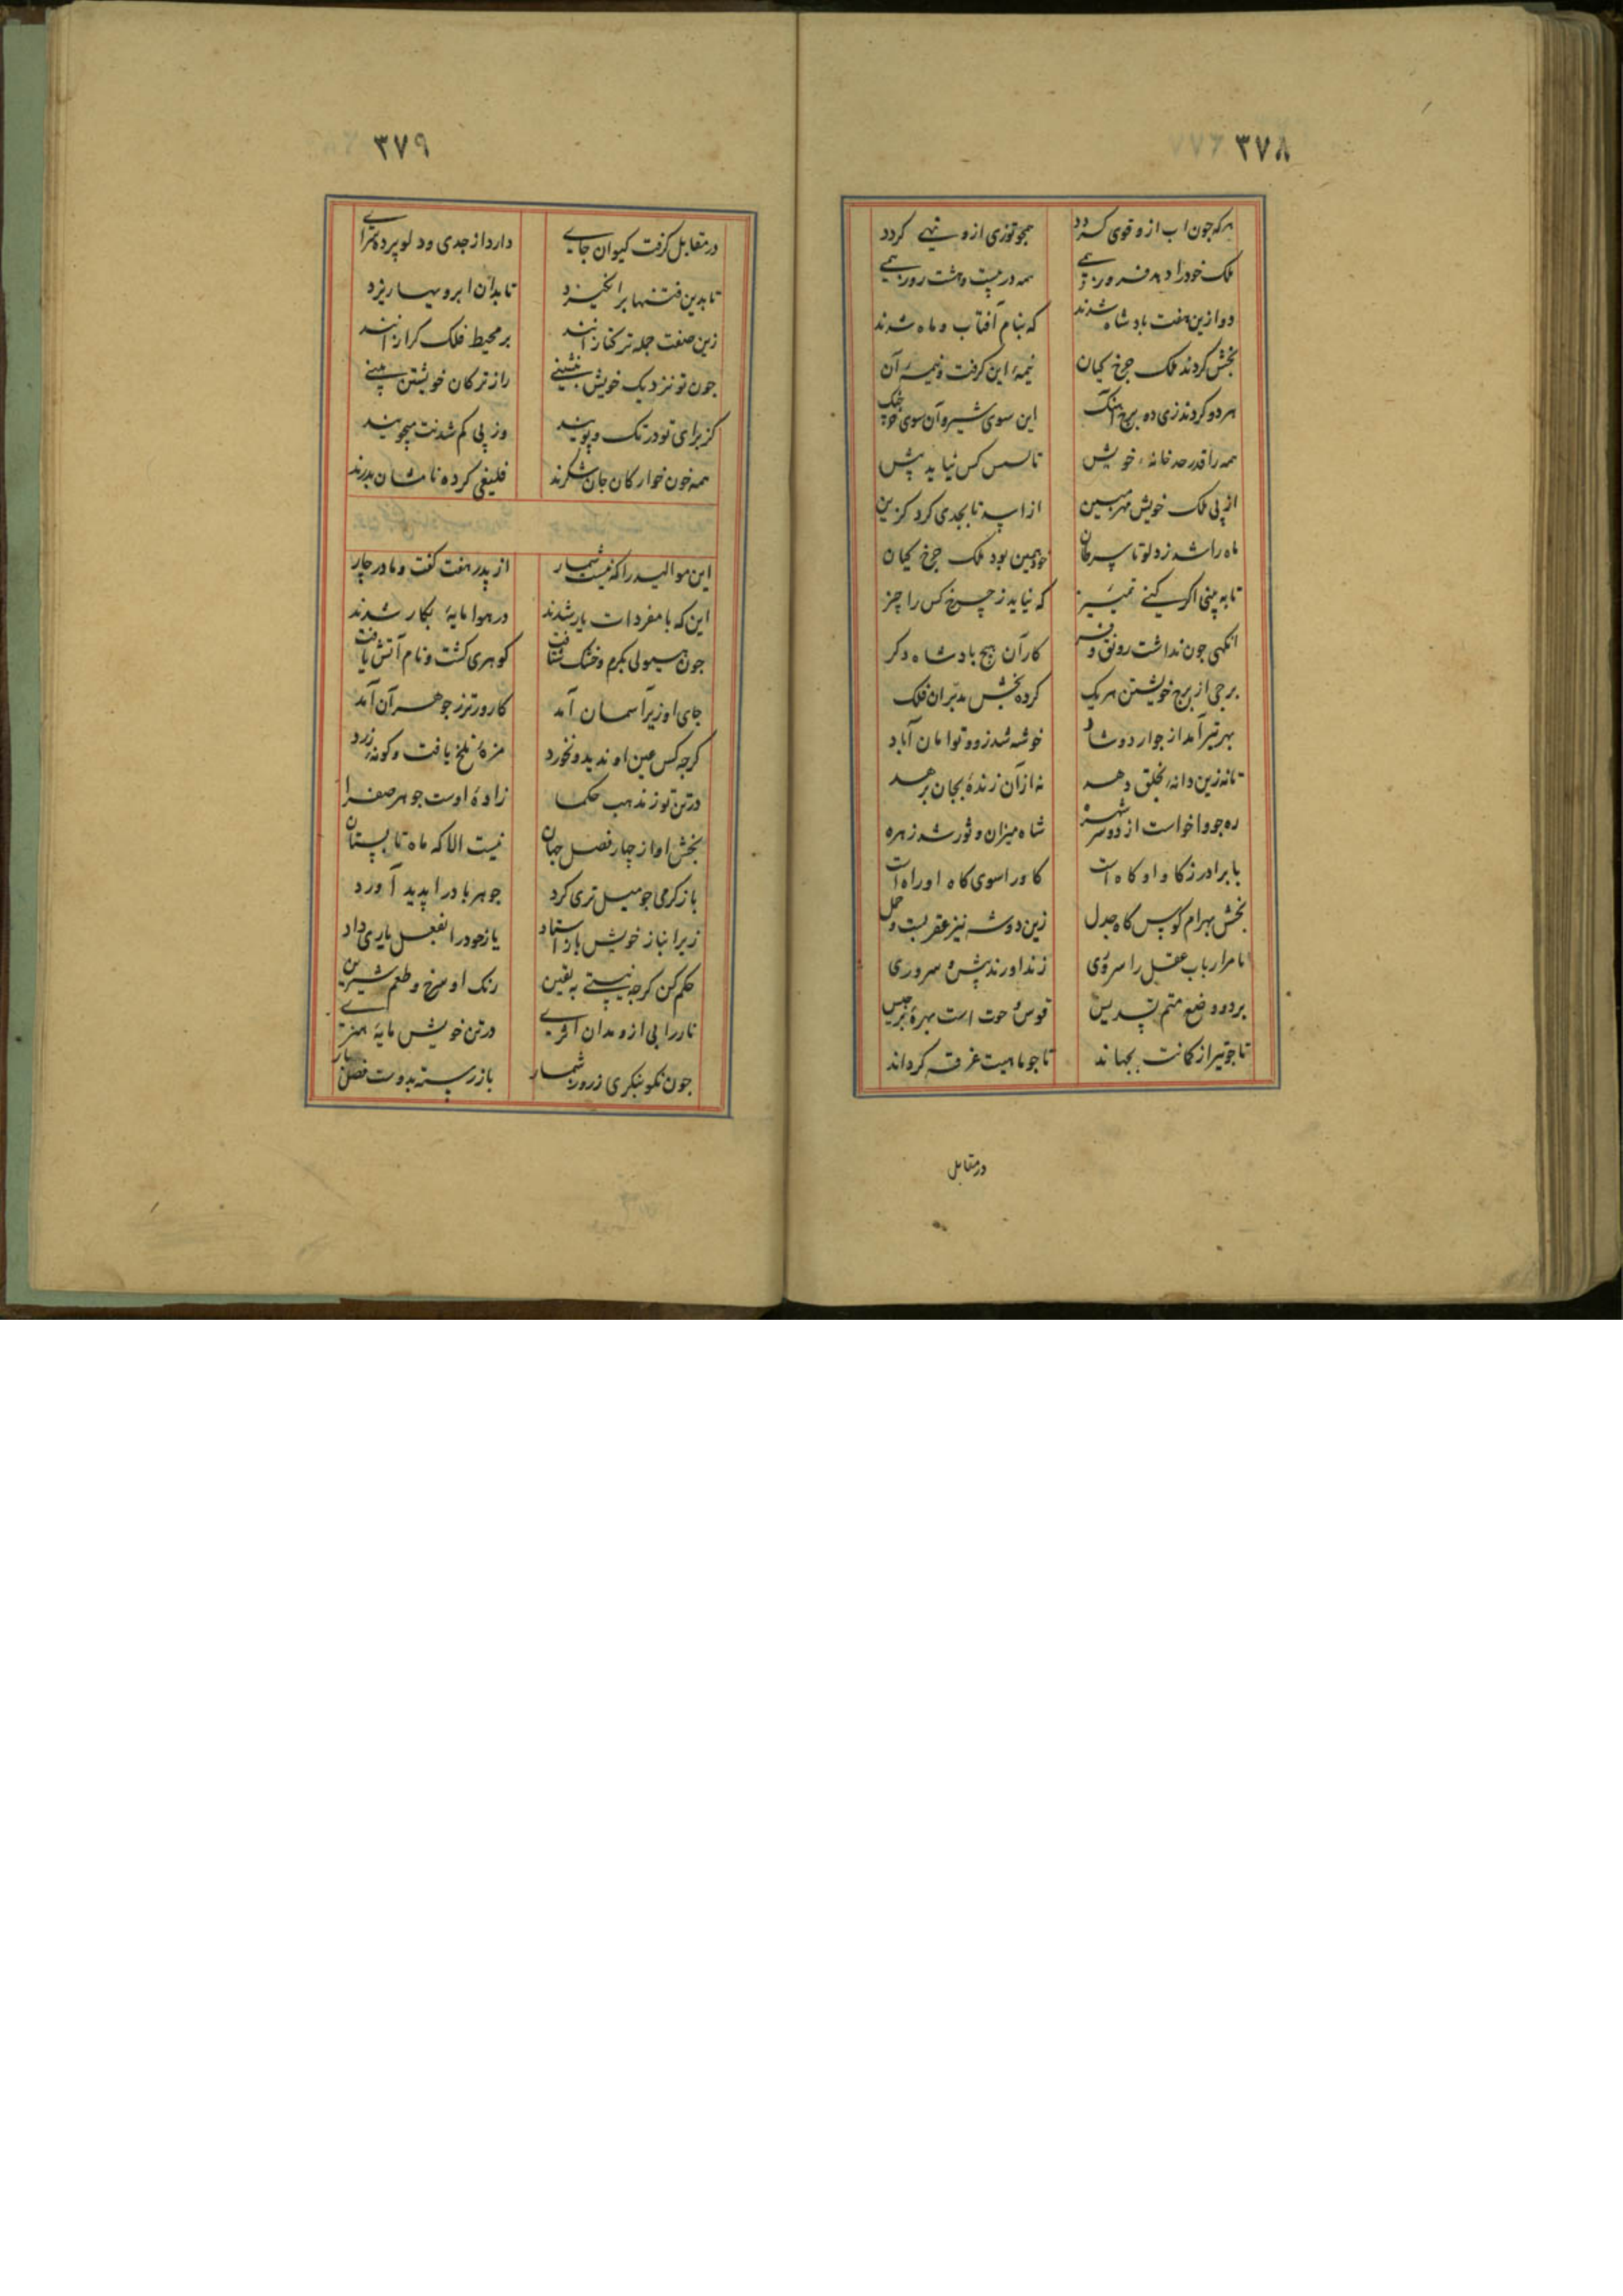 ٣٧٨
هرکه جون اب ازو قوی کردد همجو توزی ازو نهی کردد
ملک خود را دهد فروز همی همه در بیست و هشت روز همی
دو ازین هفت بادشاه شدند که بنام آفتاب و ماه شدند
بخش کردند ملک جرخ کیان نیمهٔ این کرفت و نیمه آن
هر دو کردند زی ده برج آهنک این سوی شیر و آن سوی
همه را قدر حد خانهٔ خویش تا کس نیاید پیش
از پی ملک خویش مهر مبین از اسد تا بجدی کرد کزین
ماه را شد ز دلو تا سرطان خود همین بود ملک جرخ کیان
تا به بینی اکر کنی تمییز که نیاید ز جرخ کس را جز
انکهی جون نداشت رونق و فر کار آن هیج بادشاه دکر
برجی از برج خویشتن هر یک کرده بخش مدبّران فلک
بهر تیر آمد از جوار دو شاد خوشه شد زو و توامان آباد
تا نه زین دانه بخلق دهد نه ازآن زندهٔ بجان برهد
ره جو واخواست از دو سر شهره شاه میزان و ثور شد زهره
با برادر ز کاو او کاه است کاو را سوی کاه او راه است
بخش بهرام کوپس کاه جدل زین دو شه نیز عقربست و حمل
تا مر ارباب عقل را سروی زند اورند پیشه سروری
برد و وضع متم تسدیس قوس و حوت است بهرهٔ برجیس
تا جو تیر از کمانت بجهاند تا جو ماهیت غرقه کرداند
در مقابل
٣٧٩
در مقابل کرفت کیوان جای دارد از جدی و دلو برده سرای
تا بدین فتنها برانکیزد تا بدان ابرو بها ریزد
زین صفت جمله ترکتازانند بر محیط فلک کرازانند
جون تو نزدیک خویش بنشینی راز ترکان خویشتن بینی
کز برای تو در تک و پویند وز پی کم شدنت میجویند
همه خون خوارکان جان شکرند فلیغی کرده نامشان بدرند
این موالید را که نیست شمار از پدر هفت کفت و مادر جار
این که با مفردات یار شدند در هوا مایهٔ بکار شدند
جون هیولی بکرم و خشک شتافت کوهری کشت و نام آتش یافت
جای او زیر آسمان آمد کارورتر ز جوهر آن آمد
کرجه کس عین او ندید و نخورد مزهٔ تلخ یافت و کونهٔ زرد
در تن تو ز مذهب حکما زادهٔ اوست جوهر صفرا
بخش او از جهار فصل جهان نیست الا که ماه تابستان
باز کرمی جو میل تری کرد جوهر باد را پدید آورد
زیر انباز خویش باز استاد باز خود را بفعل یاری داد
حکم کن کرجه نیستی به یقین رنک او سرخ و طعم شیرین
نار را بی ازو مدان اثری در تن خویش مایهٔ هنری
جون نکو بنکری ز روز شمار باز رسته بدوست فصل بهار